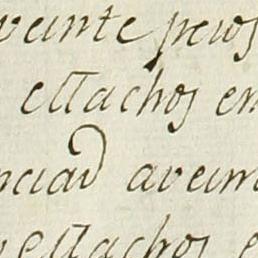 veinte pesos
estachos en
nciad aveint
estachos e